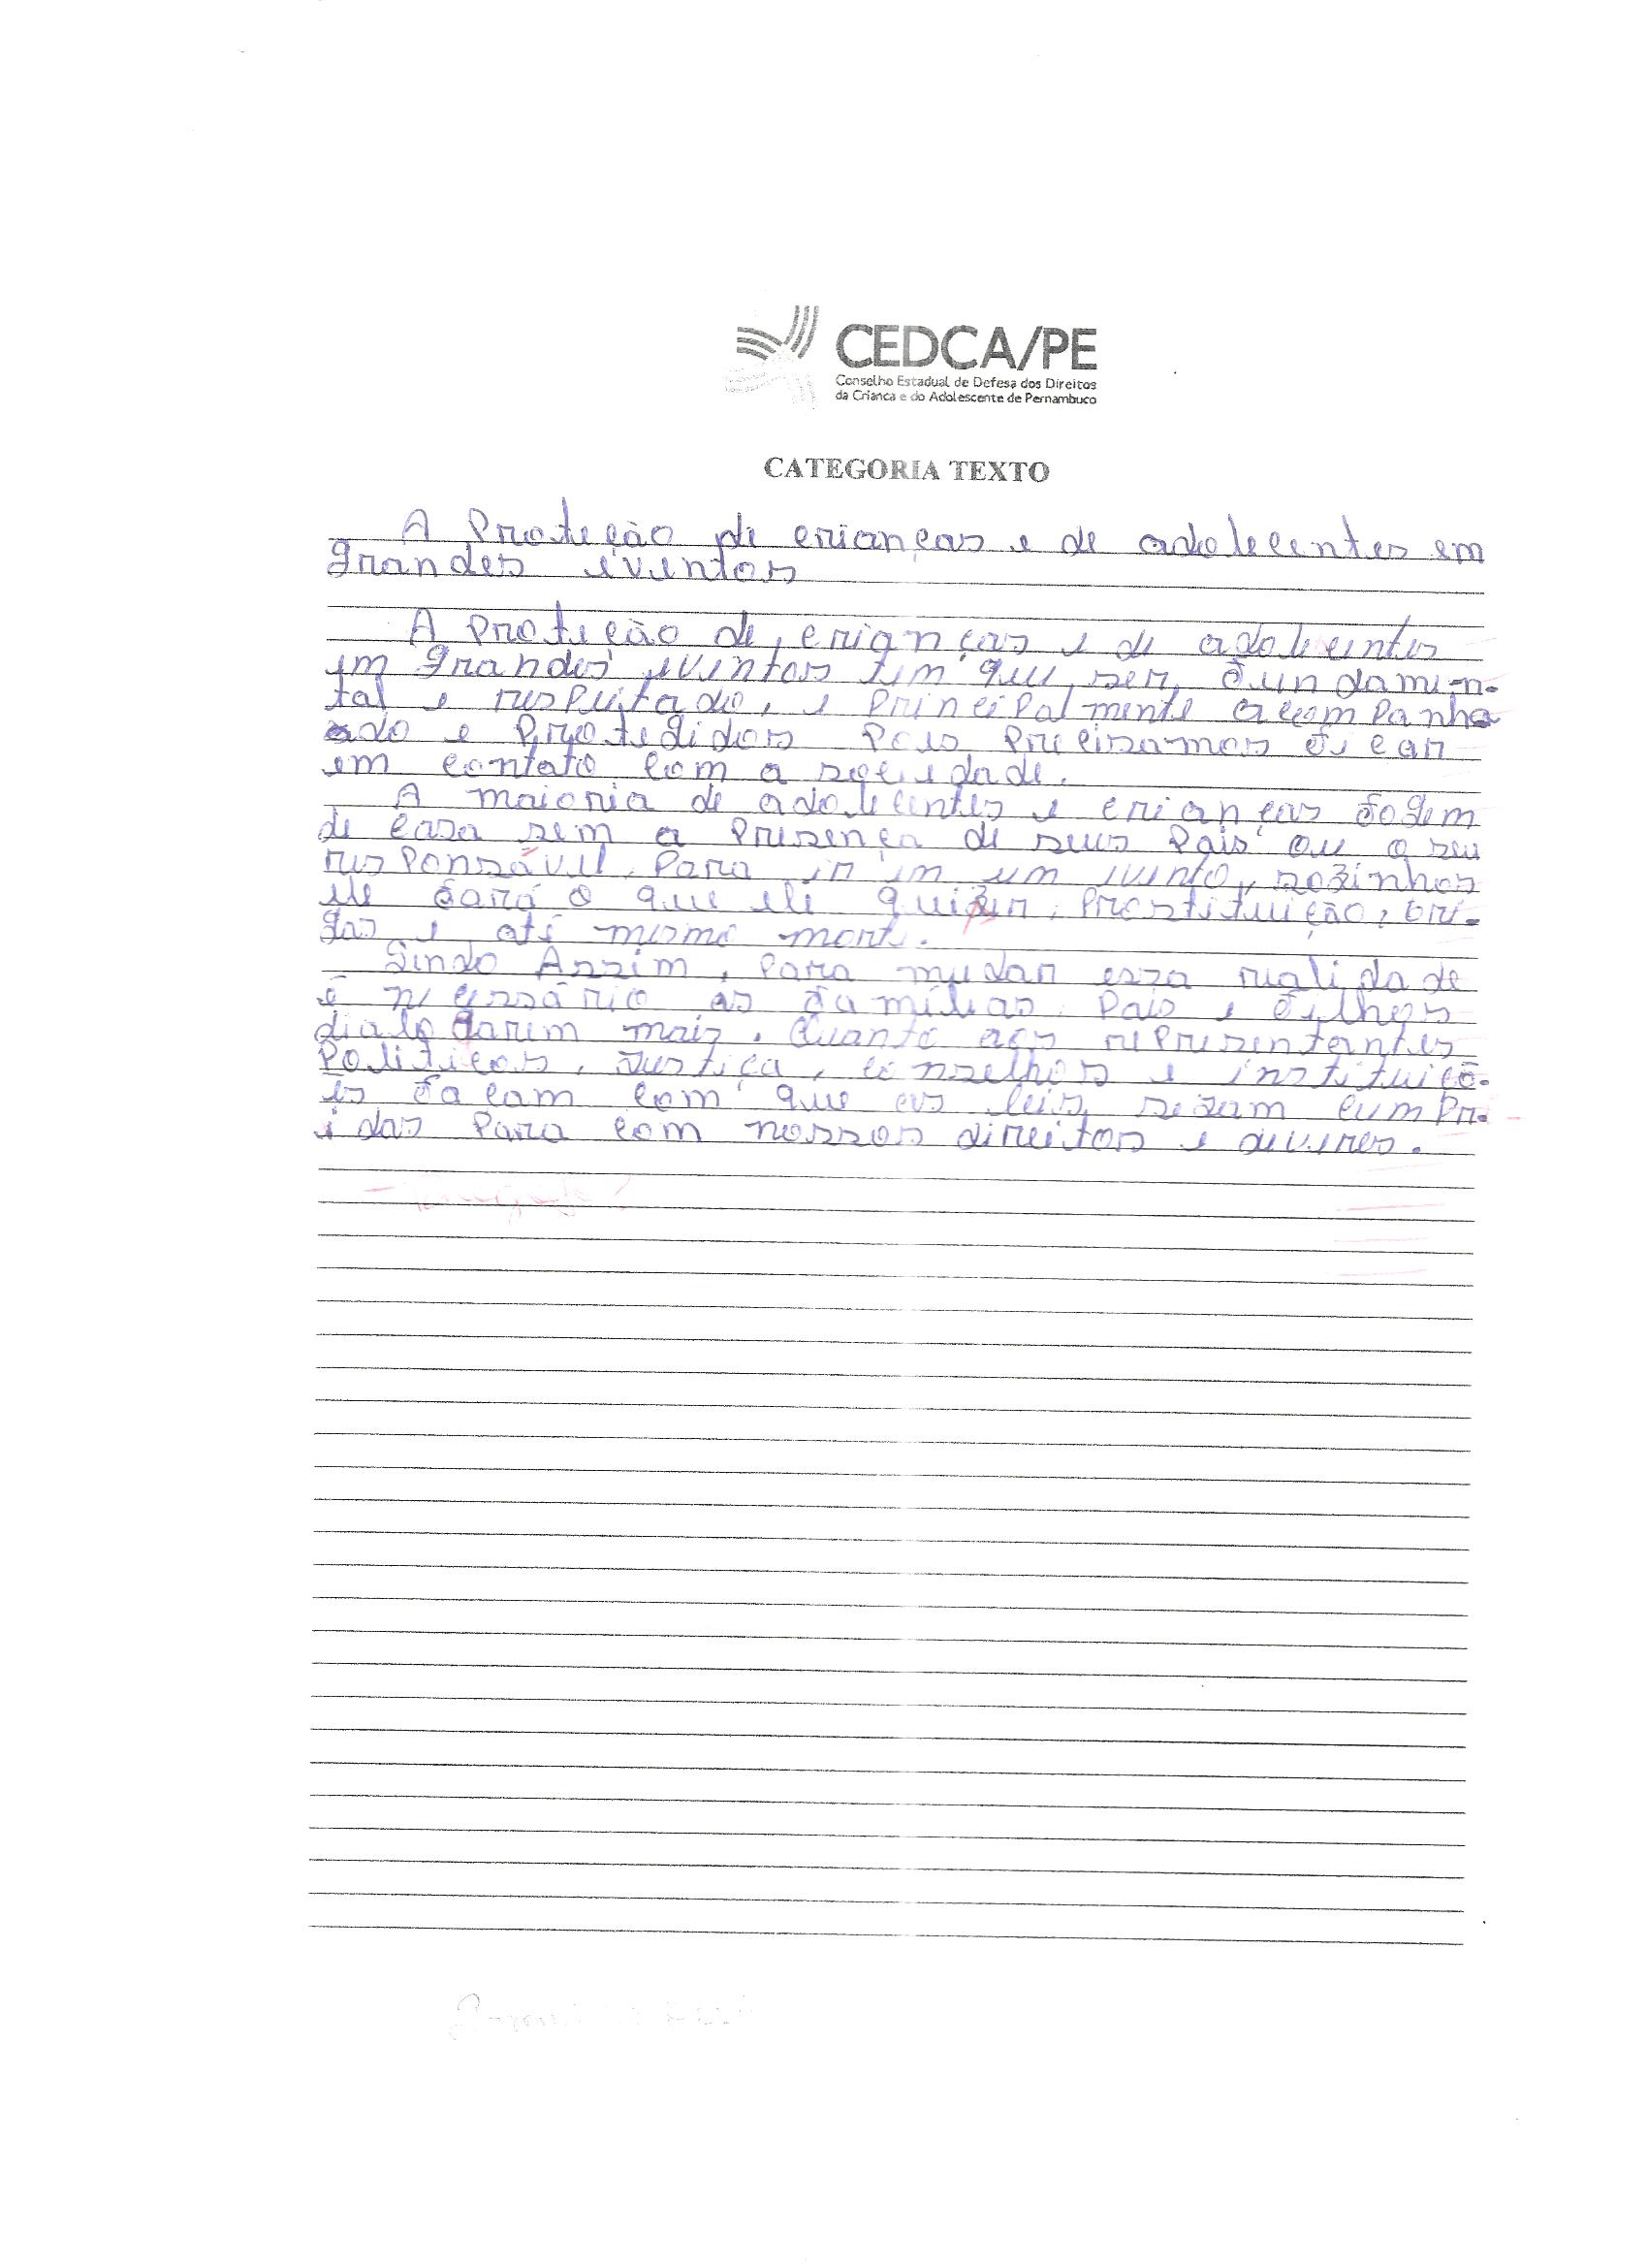 CEDCA/PE
Conselho Estadual de Defesa dos Direitos
da Criança e do Adolescente de Pernambuco
CATEGORIA TEXTO
A Proteção de crianças e de adolecentes em
grandes eventos
A Proteção de crianças e de adolecentes
em grandes eventos tem que ser fundamen-
tal e respeitado, e principalmente acompanha
ado e Protegidos Pois Precisamos ficar
em contato com a sociedade.
A maioria de adolecentes e crianças fogem
de casa sem a Presença de seus Pais ou o seu
responsável Para ir em um evento, sozinhos
ele fará o que ele quizer, Prostituição, bri-
gas e até mesmo morte.
Sendo Assim, Para mudar essa realidade
é necessário as famílias Pais e filhos
dialogarem mais. Quanto aos representantes
Politicos, Justiça, conselhos e instituiçõ-
es façam com que as leis sejam cumpr-
idas Para com nossos direitos e deveres.